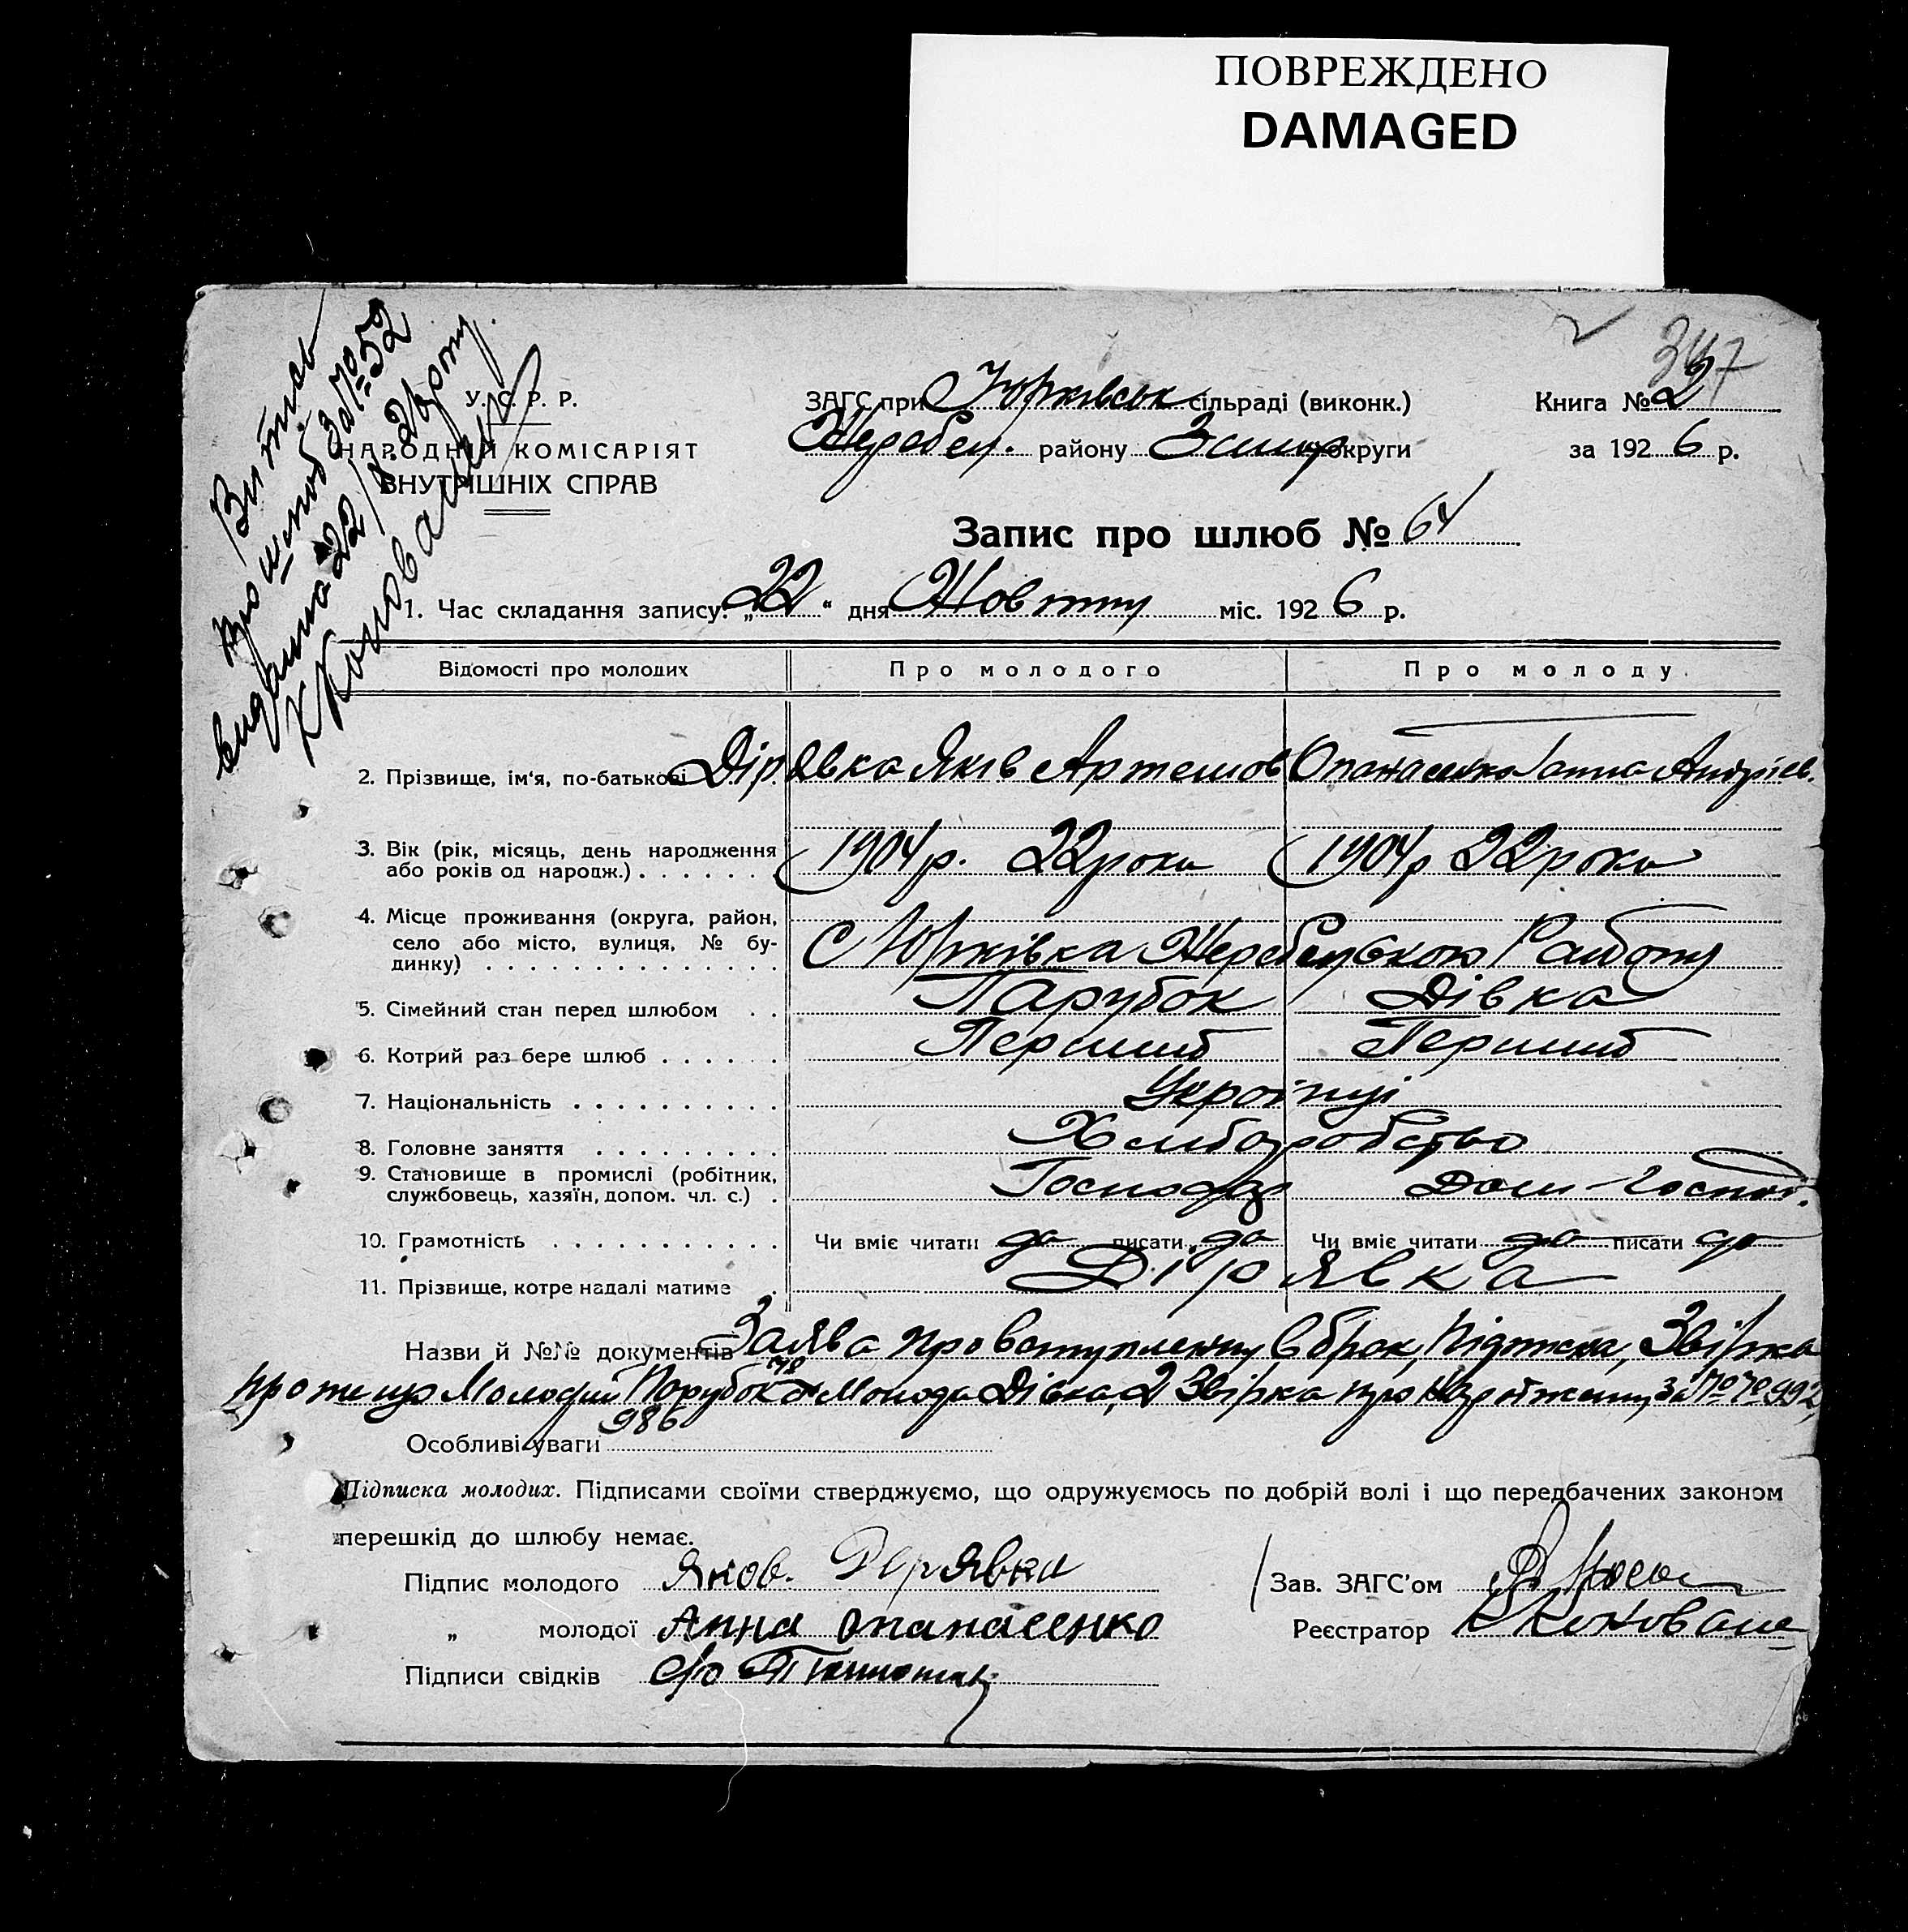 ПОВРЕЖДЕНО
DAMAGED
347
Витяг
про шлюб за № 52
видана 22/X 26 року
К Коновален
У. С. Р. Р.
НАРОДНІЙ КОМІСАРІЯТ
ВНУТРІШНІХ СПРАВ
ЗАГС при Юрківськ сільраді (виконк.) Книга № 2
Жеребец. району Запор округи за 1926 р.
Запис про шлюб № 64
1. Час складання запису: „22“ дня Жовтня міс. 1926 р.
Відомості про молодих Про молодого Про молоду
2. Прізвище, ім'я, по-батькові Дірявка Яків Артемов Опанасенко Ганна Андріев.
3. Вік (рік, місяць, день народження 1904 р. 22 роки 1904 р 22 роки
або років од народж.)
4. Місце проживання (округа, район,
село або місто, вулиця, № бу- С Юрківка Жеребецького Району
динку)
5. Сімейний стан перед шлюбом Парубок Дівка
6. Котрий раз бере шлюб Перший Перший
7. Національність Українці
8. Головне заняття Хліборобство
9. Становище в промислі (робітник, Господар Дом-Господ.
службовець, хазяїн, допом. чл. с.)
10. Грамотність Чи вміє читати да писати да Чи вміє читати да писати да
11. Прізвище, котре надалі матиме Дірявка
Назви й №№ документів Заява про вступлению в брак, Підписка, Звірка
про те що Молодий Парубок а Молода Дівка, 2 Звірка про за №№ 992,
986
Особливі уваги
Підписка молодих. Підписами своїми стверджуємо, що одружуємось по добрій волі і що передбачених законом
перешкід до шлюбу немає.
Підпис молодого Яков. Дерявка Зав. ЗАГС'ом
„ молодої Анна Опанасенко Реєстратор К Коновале
Підписи свідків